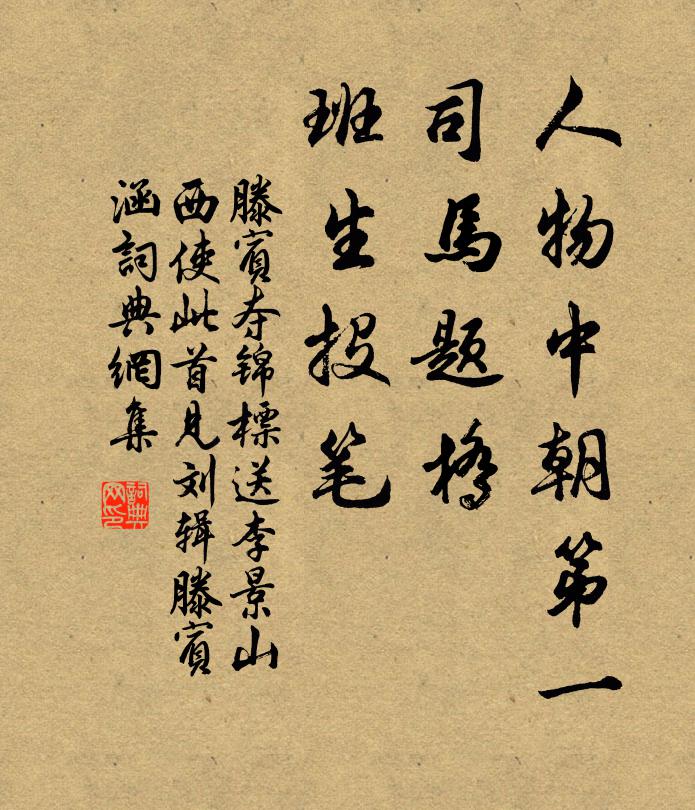 人物中朝第一
司馬题橋
班生投笔
滕賓夺锦標送李景山
西使此首見刘辑滕賓
涵詞典網集
詞典网印